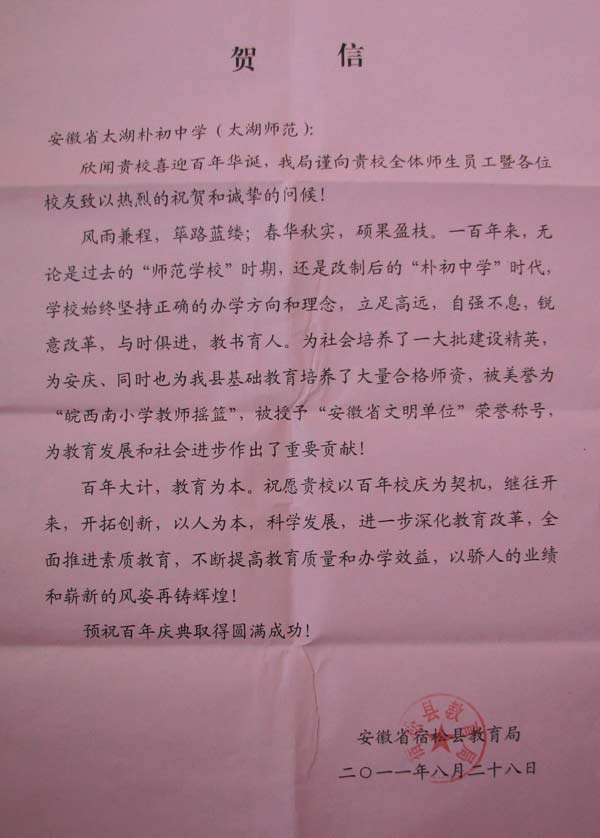 贺 信
安徽省太湖朴初中学（太湖师范）：
欣闻贵校喜迎百年华诞，我局谨向贵校全体师生员工暨各位
校友致以热烈的祝贺和诚挚的问候！
风雨兼程，筚路蓝缕；春华秋实，硕果盈枝。一百年来，无
论是过去的“师范学校”时期，还是改制后的“朴初中学”时代，
学校始终坚持正确的办学方向和理念，立足高远，自强不息，锐
意改革，与时俱进，教书育人。为社会培养了一大批建设精英，
为安庆、同时也为我县基础教育培养了大量合格师资，被美誉为
“皖西南小学教师摇篮”，被授予“安徽省文明单位”荣誉称号，
为教育发展和社会进步作出了重要贡献！
百年大计，教育为本。祝愿贵校以百年校庆为契机，继往开
来，开拓创新，以人为本，科学发展，进一步深化教育改革，全
面推进素质教育，不断提高教育质量和办学效益，以骄人的业绩
和崭新的风姿再铸辉煌！
预祝百年庆典取得圆满成功！
安徽省宿松县教育局
二〇一一年八月二十八日
宿松县教育局